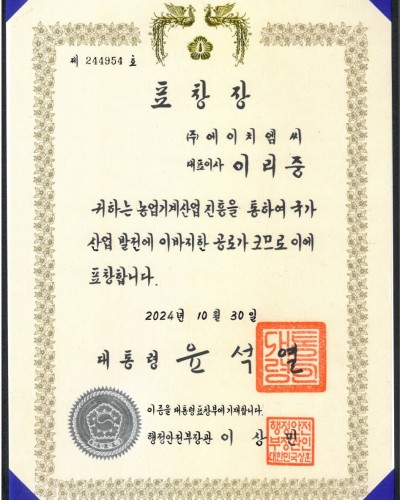 제 244954 호
표창장
(주)에이치엠씨
대표이사 이리중
귀하는 농업기계산업 진흥을 통하여 국가
산업 발전에 이바지한 공로가 크므로 이에
표창합니다.
2024년 10월 30일
대통령 윤석열
이 증을 대통령표창부에 기재합니다.
행정안전부장관 이상민